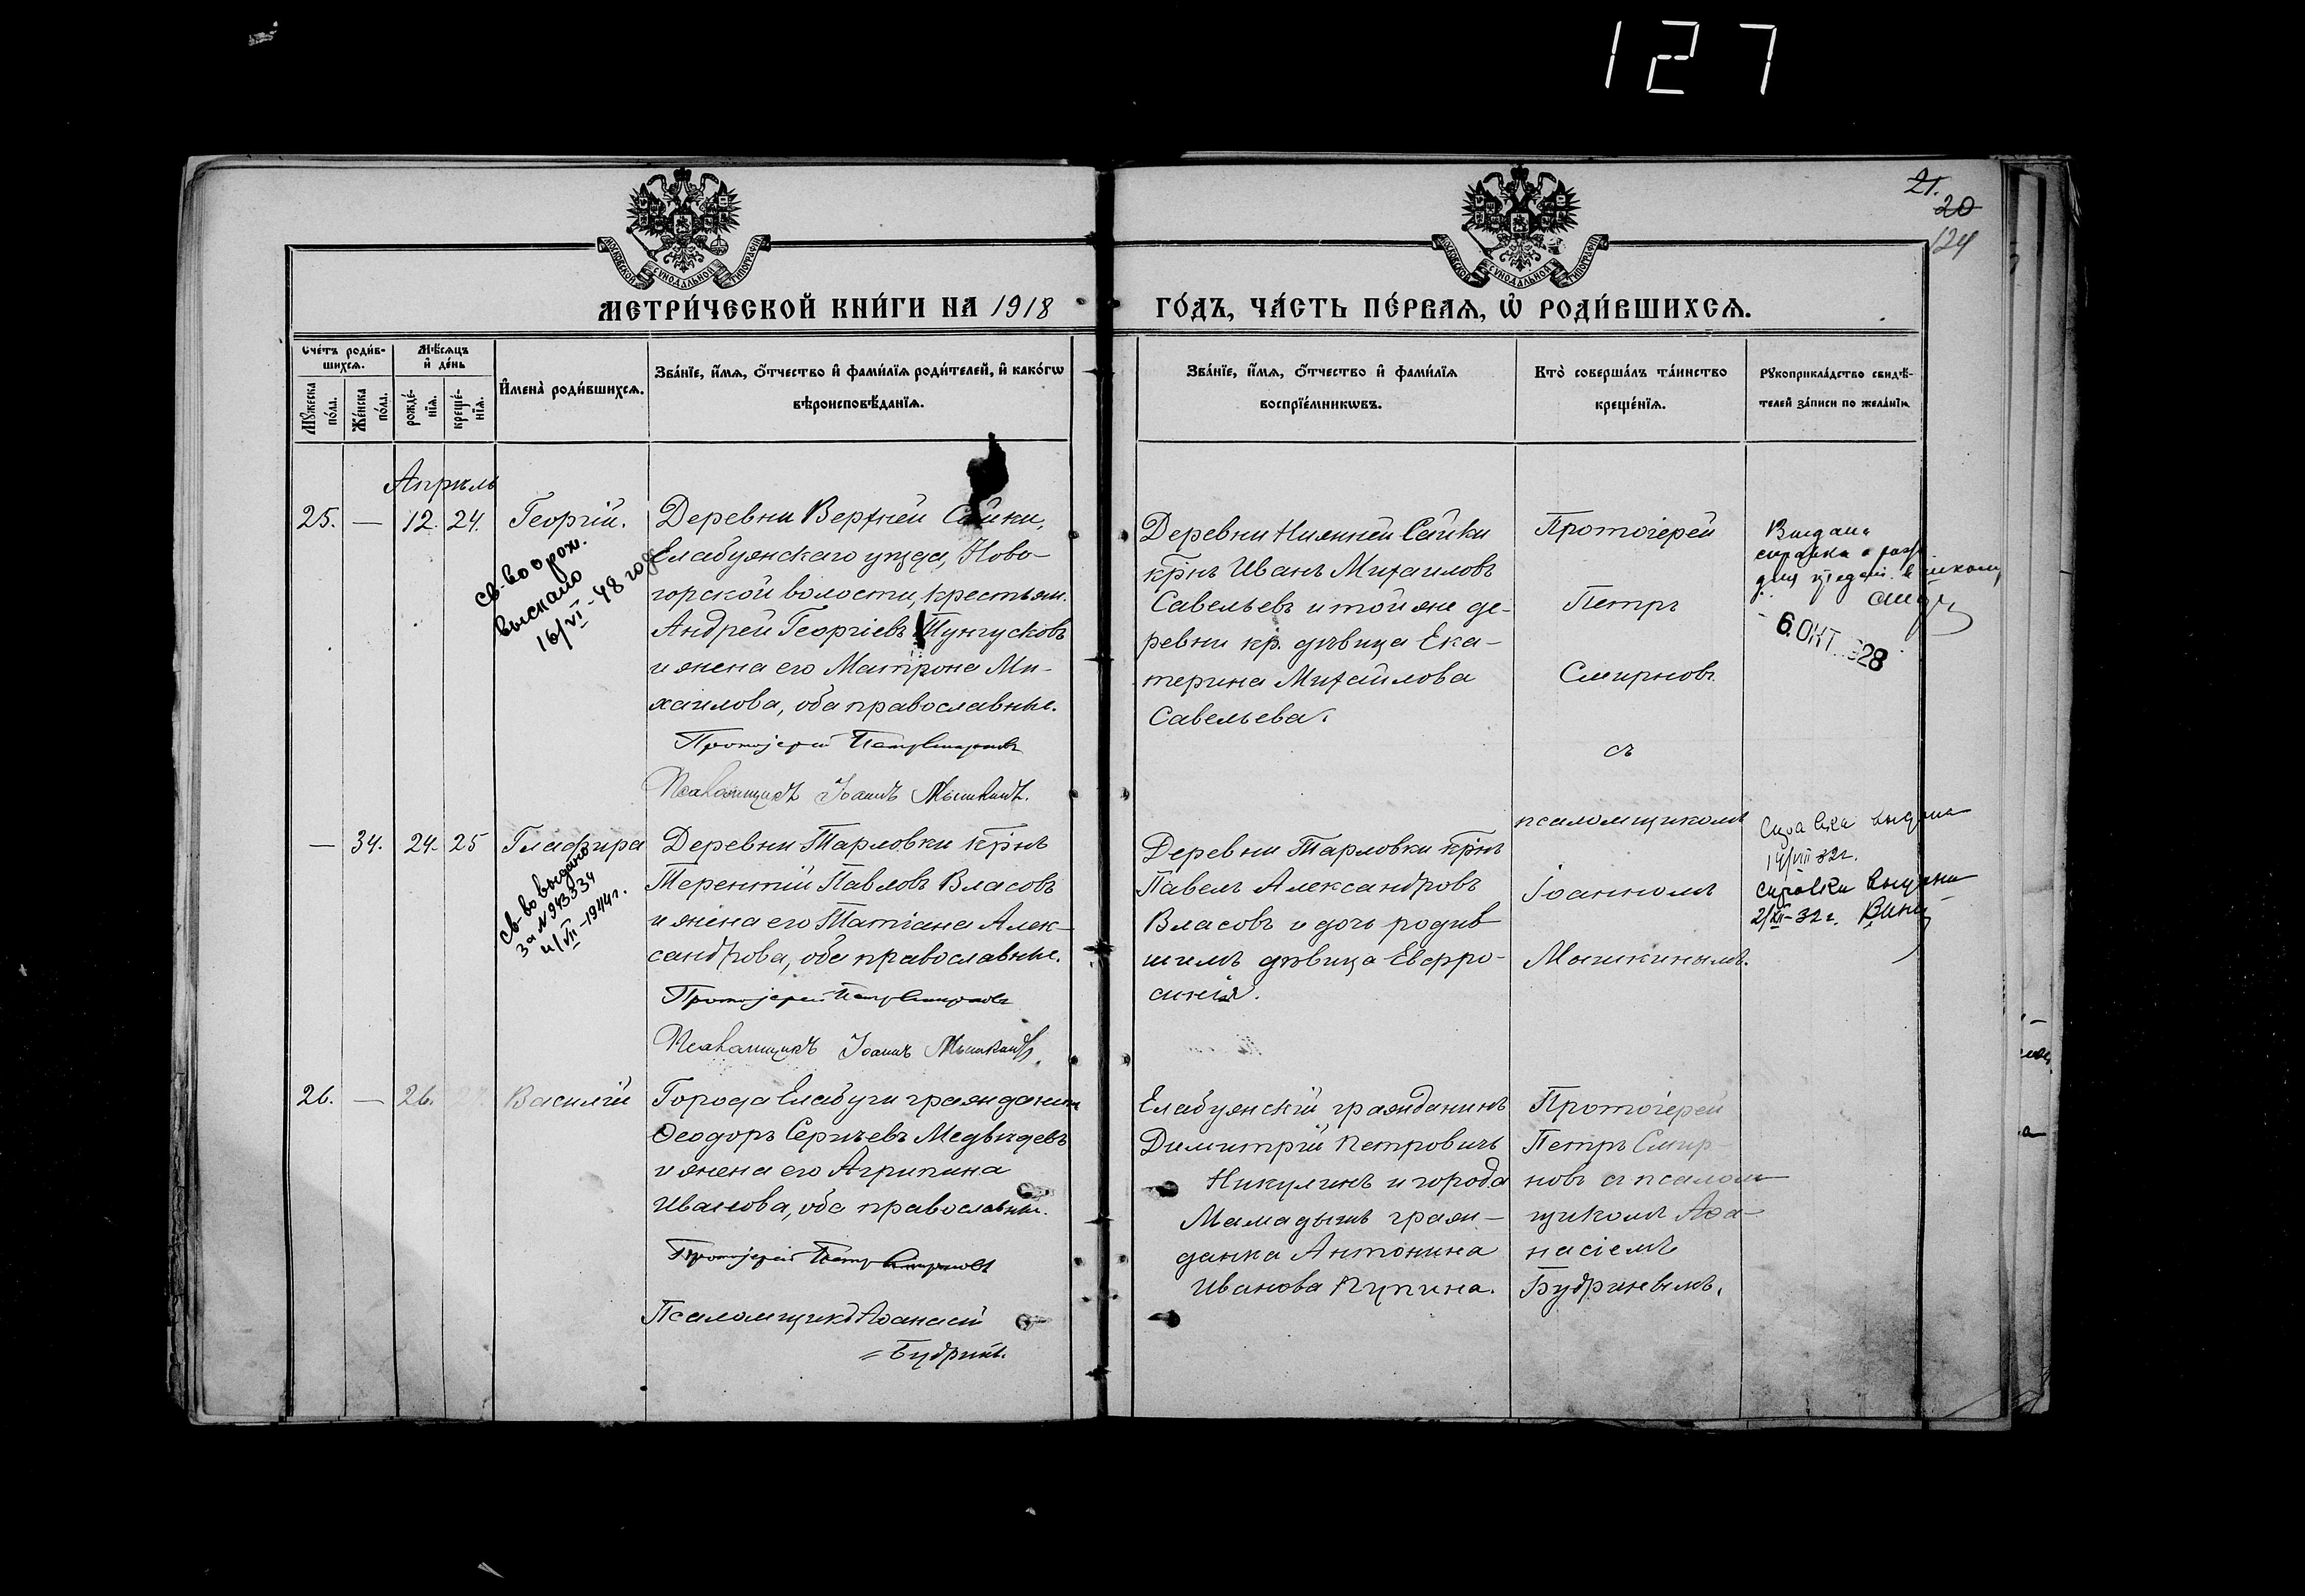 127
21.
20
124
МОСКОВСКОЙ СѴНОДАЛЬНОЙ ТИПОГРАФІИ
МОСКОВСКОЙ СѴНОДАЛЬНОЙ ТИПОГРАФІИ
МЕТРИ́ЧЕСКОЙ КНИ́ГИ НА 1918
ГО́ДЪ, ЧА́СТЬ ПЕ́РВАѦ, Ѡ҆ РОДИ́ВШИХСѦ.
Сче́тъ роди́в-
шихсѧ.
Мѣ́сѧцъ
и҆ де́нь
Мꙋ́жеска
по́ла.
Же́нска
по́ла.
рожде́-
нїѧ.
креще́-
нїѧ.
И҆мена̀ роди́вшихсѧ.
Зва́нїе, и҆́мѧ, ѻ҆́тчество и҆ фами́лїѧ роди́телей, и҆ како́гѡ
вѣроисповѣ́данїѧ.
Зва́нїе, и҆́мѧ, ѻ҆́тчество и҆ фами́лїѧ
воспрїе́мникѡвъ.
Кто̀ соверша́лъ та́инство
креще́нїѧ.
Рꙋкоприкла́дство свидѣ́-
телей за́писи по жела́нїю.
Апрѣль
25. — 12. 24. Георгій.
св-во о рож.
выслано
16/VI - 48 года
Деревни Верхней Сайки,
Елабужскаго уѣзда, Ново-
горской волости, крестьян.
Андрей Георгіевъ Тунгусковъ
и жена его Матрона Ми-
хаилова, оба православные.
Протоіерей Петръ Смирновъ
Псаломщикъ Іоаннъ Мышкинъ.
Деревни Нижней Сайки
кр̃нъ Иванъ Михаиловъ
Савельевъ и той же де-
ревни кр. дѣвица Ека-
терина Михайлова
Савельева.
Протоіерей
Петръ
Смирновъ
съ
псаломщикомъ
Іоанномъ
Мышкинымъ.
Выдана
справка о
для
6. ОКТ. 1928
— 34. 24. 25 Глафира
св-во выдано
за № 943334
11/VII - 1944 г.
Деревни Тарловки кр̃нъ
Терентій Павловъ Власовъ
и жена его Татіана Алек-
сандрова, оба православные.
Протоіерей Петръ Смирновъ
Псаломщикъ Іоаннъ Мышкинъ.
Деревни Тарловки кр̃нъ
Павелъ Александровъ
Власовъ и дочь родив
шимъ дѣвица Евфро-
синія.
Справка выдана
14/VIII 32 г.
Справка выдана
2/XII - 32 г.
26. — 26. 27. Василій
Города Елабуги гражданинъ
Ѳеодоръ Сергѣевъ Медвѣдевъ
и жена его Агрипина
Иванова, оба православные.
Протоіерей Петръ Смирновъ
Псаломщикъ Аѳанасій
Будринъ.
Елабужскій гражданинъ
Димитрій Петровичъ
Никулинъ и города
Мамадышъ граж-
данка Антонина
Иванова Пупина.
Протоіерей
Петръ Смир-
новъ съ псалом-
щикомъ Аѳа-
насіемъ
Будриневымъ.